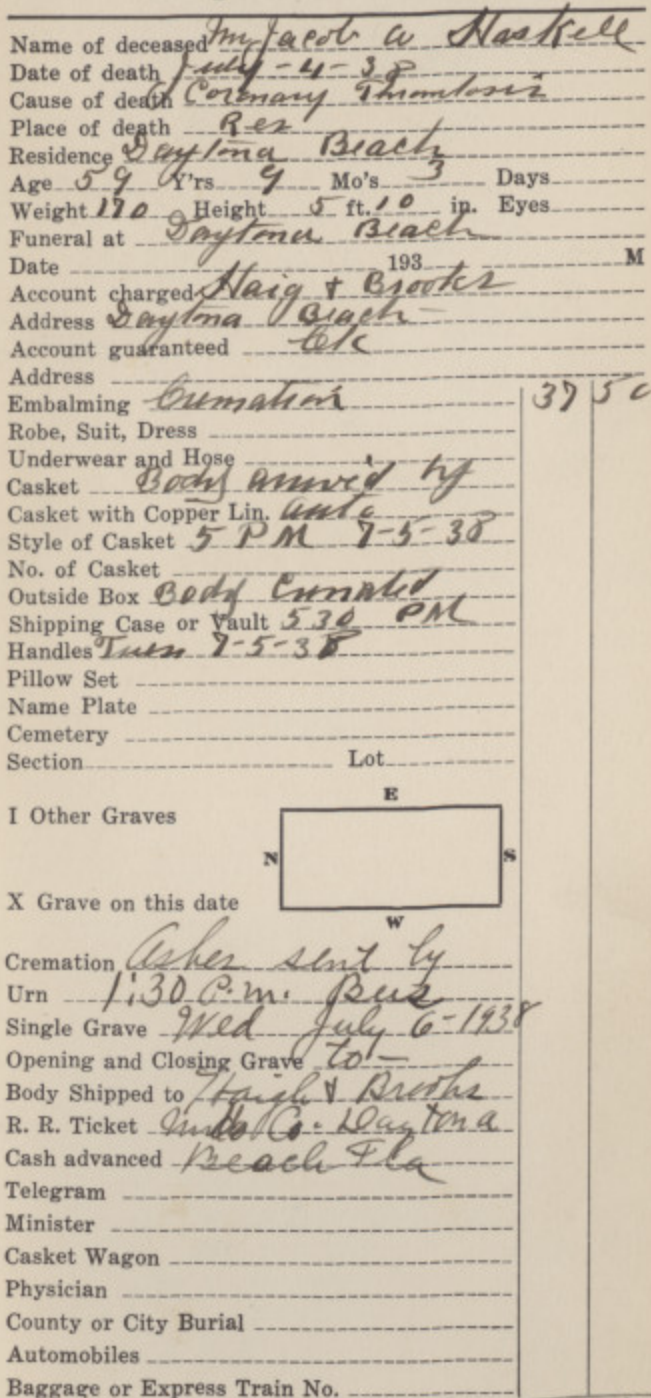 Name of deceased Mr Jacob a Haskell
Date of death July-4-38
Cause of death Coronary Thrombosis
Place of death Res
Residence Daytona Beach
Age 59 Y'rs 9 Mo's 3 Days
Weight 170 Height 5 ft. 10 in. Eyes
Funeral at Daytona Beach
Date 193 M
Account charged Haig & Brooks
Address Daytona Beach
Account guaranteed
Address
Embalming Cremation 37 50
Robe, Suit, Dress
Underwear and Hose
Casket Body arriv'd by
Casket with Copper Lin. auto
Style of Casket 5 PM 7-5-38
No. of Casket
Outside Box Body Cremated
Shipping Case or Vault 530 PM
Handles Tues 7-5-38
Pillow Set
Name Plate
Cemetery
Section Lot
E
I Other Graves
N S
X Grave on this date
W
Cremation Ashes sent by
Urn 1:30 P.m. Bus
Single Grave Wed July 6-1938
Opening and Closing Grave to-
Body Shipped to Haigh & Brooks
R. R. Ticket Co. Daytona
Cash advanced Beach Fla
Telegram
Minister
Casket Wagon
Physician
County or City Burial
Automobiles
Baggage or Express Train No.